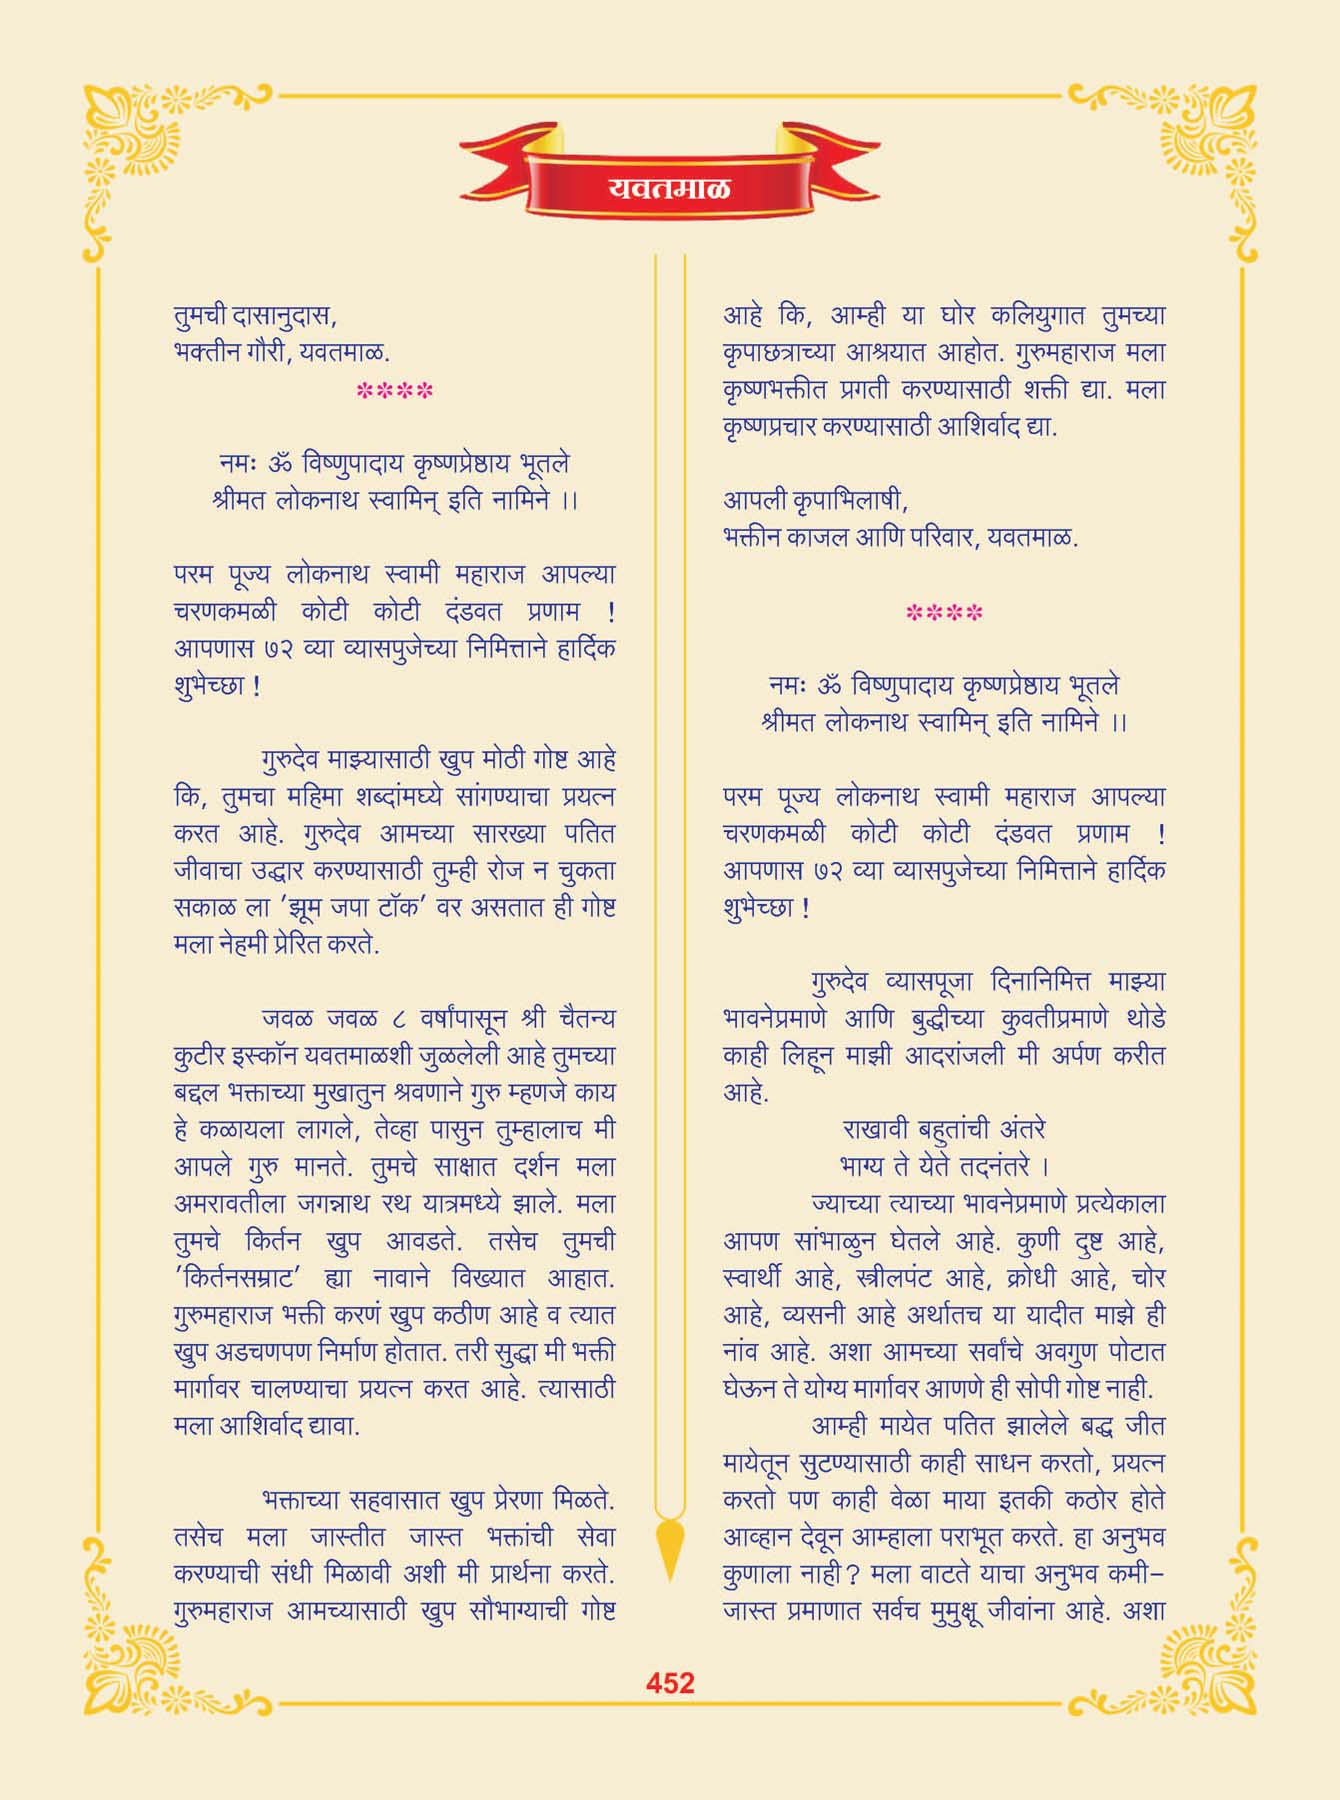 यवतमाळ
तुमची दासानुदास,
भक्तीन गौरी, यवतमाळ.
****
नमः ॐ विष्णुपादाय कृष्णप्रेष्ठाय भूतले
श्रीमत लोकनाथ स्वामिन् इति नामिने ।।
परम पूज्य लोकनाथ स्वामी महाराज आपल्या
चरणकमळी कोटी कोटी दंडवत प्रणाम !
आपणास ७२ व्या व्यासपुजेच्या निमित्ताने हार्दिक
शुभेच्छा !
गुरुदेव माझ्यासाठी खुप मोठी गोष्ट आहे
कि, तुमचा महिमा शब्दांमध्ये सांगण्याचा प्रयत्न
करत आहे. गुरुदेव आमच्या सारख्या पतित
जीवाचा उद्धार करण्यासाठी तुम्ही रोज न चुकता
सकाळ ला 'झूम जपा टॉक' वर असतात ही गोष्ट
मला नेहमी प्रेरित करते.
जवळ जवळ ८ वर्षांपासून श्री चैतन्य
कुटीर इस्कॉन यवतमाळशी जुळलेली आहे तुमच्या
बद्दल भक्ताच्या मुखातुन श्रवणाने गुरु म्हणजे काय
हे कळायला लागले, तेव्हा पासुन तुम्हालाच मी
आपले गुरु मानते. तुमचे साक्षात दर्शन मला
अमरावतीला जगन्नाथ रथ यात्रमध्ये झाले. मला
तुमचे किर्तन खुप आवडते. तसेच तुमची
'किर्तनसम्राट' ह्या नावाने विख्यात आहात.
गुरुमहाराज भक्ती करणं खुप कठीण आहे व त्यात
खुप अडचणपण निर्माण होतात. तरी सुद्धा मी भक्ती
मार्गावर चालण्याचा प्रयत्न करत आहे. त्यासाठी
मला आशिर्वाद द्यावा.
भक्ताच्या सहवासात खुप प्रेरणा मिळते.
तसेच मला जास्तीत जास्त भक्तांची सेवा
करण्याची संधी मिळावी अशी मी प्रार्थना करते.
गुरुमहाराज आमच्यासाठी खुप सौभाग्याची गोष्ट
आहे कि, आम्ही या घोर कलियुगात तुमच्या
कृपाछत्राच्या आश्रयात आहोत. गुरुमहाराज मला
कृष्णभक्तीत प्रगती करण्यासाठी शक्ती द्या. मला
कृष्णप्रचार करण्यासाठी आशिर्वाद द्या.
आपली कृपाभिलाषी,
भक्तीन काजल आणि परिवार, यवतमाळ.
****
नमः ॐ विष्णुपादाय कृष्णप्रेष्ठाय भूतले
श्रीमत लोकनाथ स्वामिन् इति नामिने ।।
परम पूज्य लोकनाथ स्वामी महाराज आपल्या
चरणकमळी कोटी कोटी दंडवत प्रणाम !
आपणास ७२ व्या व्यासपुजेच्या निमित्ताने हार्दिक
शुभेच्छा !
गुरुदेव व्यासपूजा दिनानिमित्त माझ्या
भावनेप्रमाणे आणि बुद्धीच्या कुवतीप्रमाणे थोडे
काही लिहून माझी आदरांजली मी अर्पण करीत
आहे.
राखावी बहुतांची अंतरे
भाग्य ते येते तदनंतरे ।
ज्याच्या त्याच्या भावनेप्रमाणे प्रत्येकाला
आपण सांभाळुन घेतले आहे. कुणी दुष्ट आहे,
स्वार्थी आहे, स्त्रीलपंट आहे, क्रोधी आहे, चोर
आहे, व्यसनी आहे अर्थातच या यादीत माझे ही
नांव आहे. अशा आमच्या सर्वांचे अवगुण पोटात
घेऊन ते योग्य मार्गावर आणणे ही सोपी गोष्ट नाही.
आम्ही मायेत पतित झालेले बद्ध जीत
मायेतून सुटण्यासाठी काही साधन करतो, प्रयत्न
करतो पण काही वेळा माया इतकी कठोर होते
आव्हान देवून आम्हाला पराभूत करते. हा अनुभव
कुणाला नाही? मला वाटते याचा अनुभव कमी-
जास्त प्रमाणात सर्वच मुमुक्षू जीवांना आहे. अशा
452